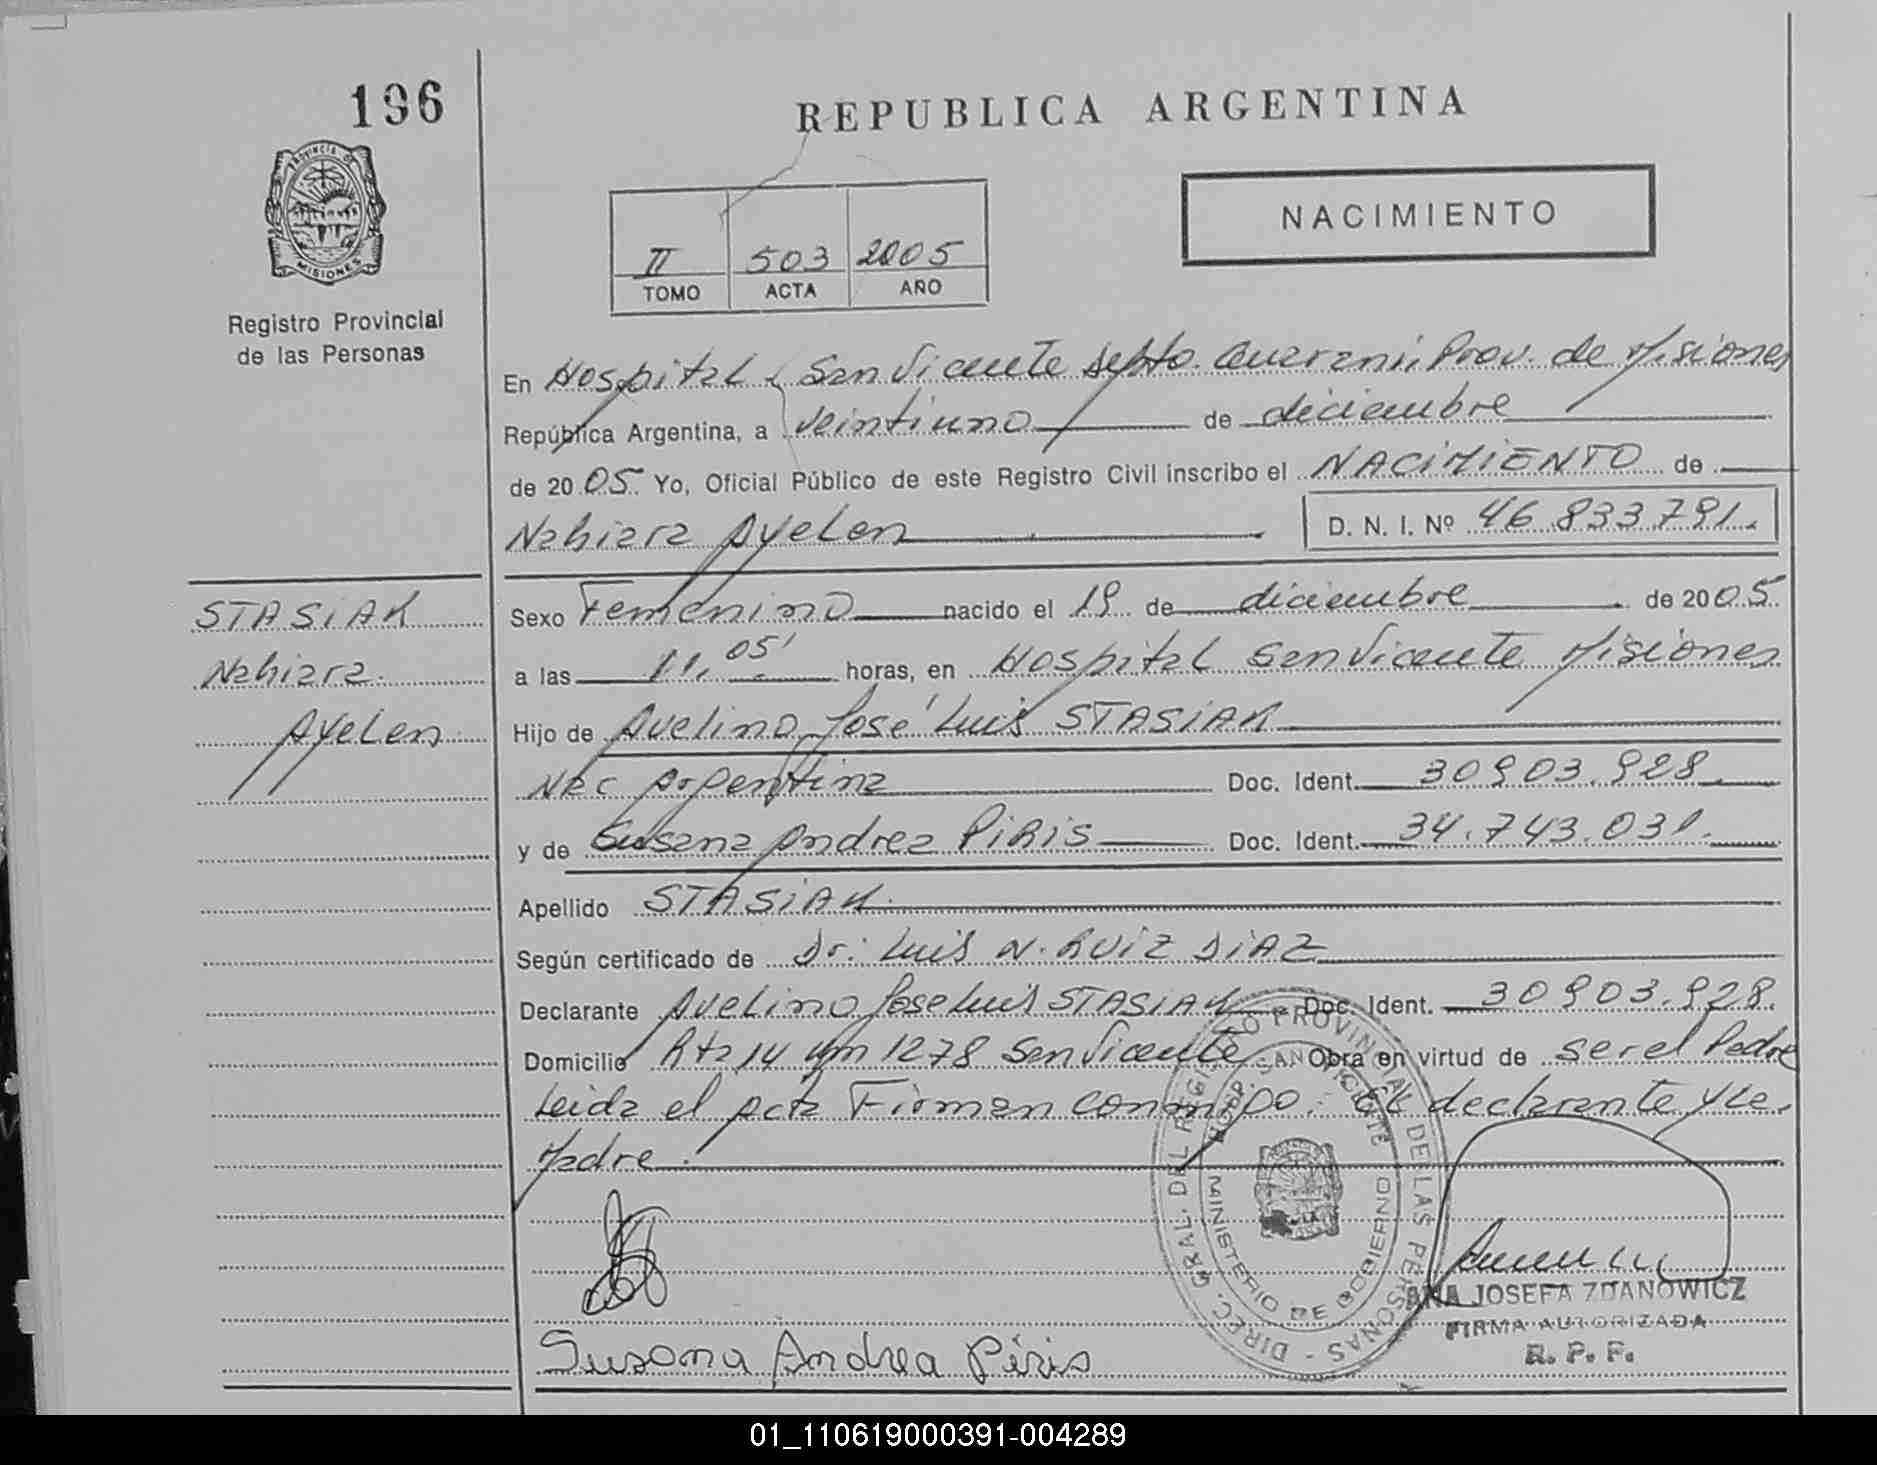 196
REPUBLICA ARGENTINA
PROVINCIA DE
MISIONES
Registro Provincial
de las Personas
NACIMIENTO
II 503 2005
TOMO ACTA AÑO
En Hospital San Vicente Depto. Guarani, Prov. de Misiones
República Argentina, a veintiuno de diciembre
de 2005 Yo, Oficial Público de este Registro Civil inscribo el NACIMIENTO de
Nahiara Ayelen D. N. I. Nº 46 833 791.
STASIAK
Nahiara
Ayelen
Sexo Femenino nacido el 19 de diciembre de 2005
a las 11,05' horas, en Hospital San Vicente Misiones
Hijo de Avelino José Luis STASIAK
Nac Argentina Doc. Ident. 30903.928
y de Susana Andrea PIRIS Doc. Ident. 34.743.031.
Apellido STASIAK
Según certificado de Dr. Luis N. RUIZ DIAZ
Declarante Avelino Jose Luis STASIAK Doc. Ident. 30903.928.
Domicilio Rta 14 Km 1278 San Vicente Obra en virtud de ser el Padre
Leida el Acta Firman conmigo. El declarante y la
Madre.
DIREC. GRAL. DEL REGISTRO PROVINCIAL DE LAS PERSONAS
HOSP. SAN VICENTE
MINISTERIO DE GOBIERNO
ANA JOSEFA ZDANOWICZ
FIRMA AUTORIZADA
R. P. P.
Susana Andrea Piris
01_110619000391-004289